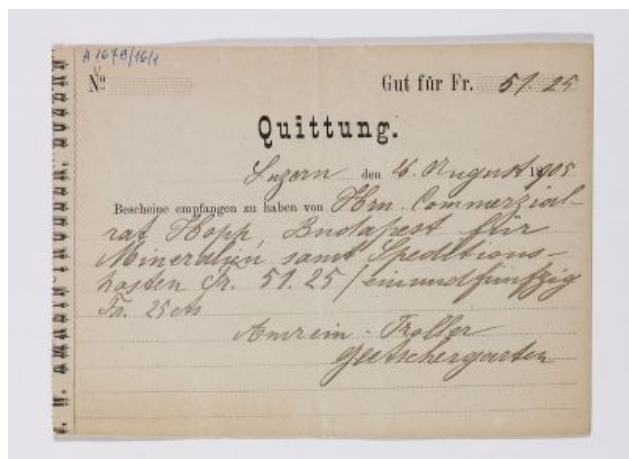 A 1679/16/1
No Gut für Fr. 51.25
Quittung.
Luzern den 16. August 1905
Bescheine empfangen zu haben von Hrn. Commerzial-
rat Hopp, Budapest für
Mineralien samt Speditions-
kosten Fr. 51.25 / einundfünfzig
Fr. 25 cts
Amrein-Troller
Gletschergarten